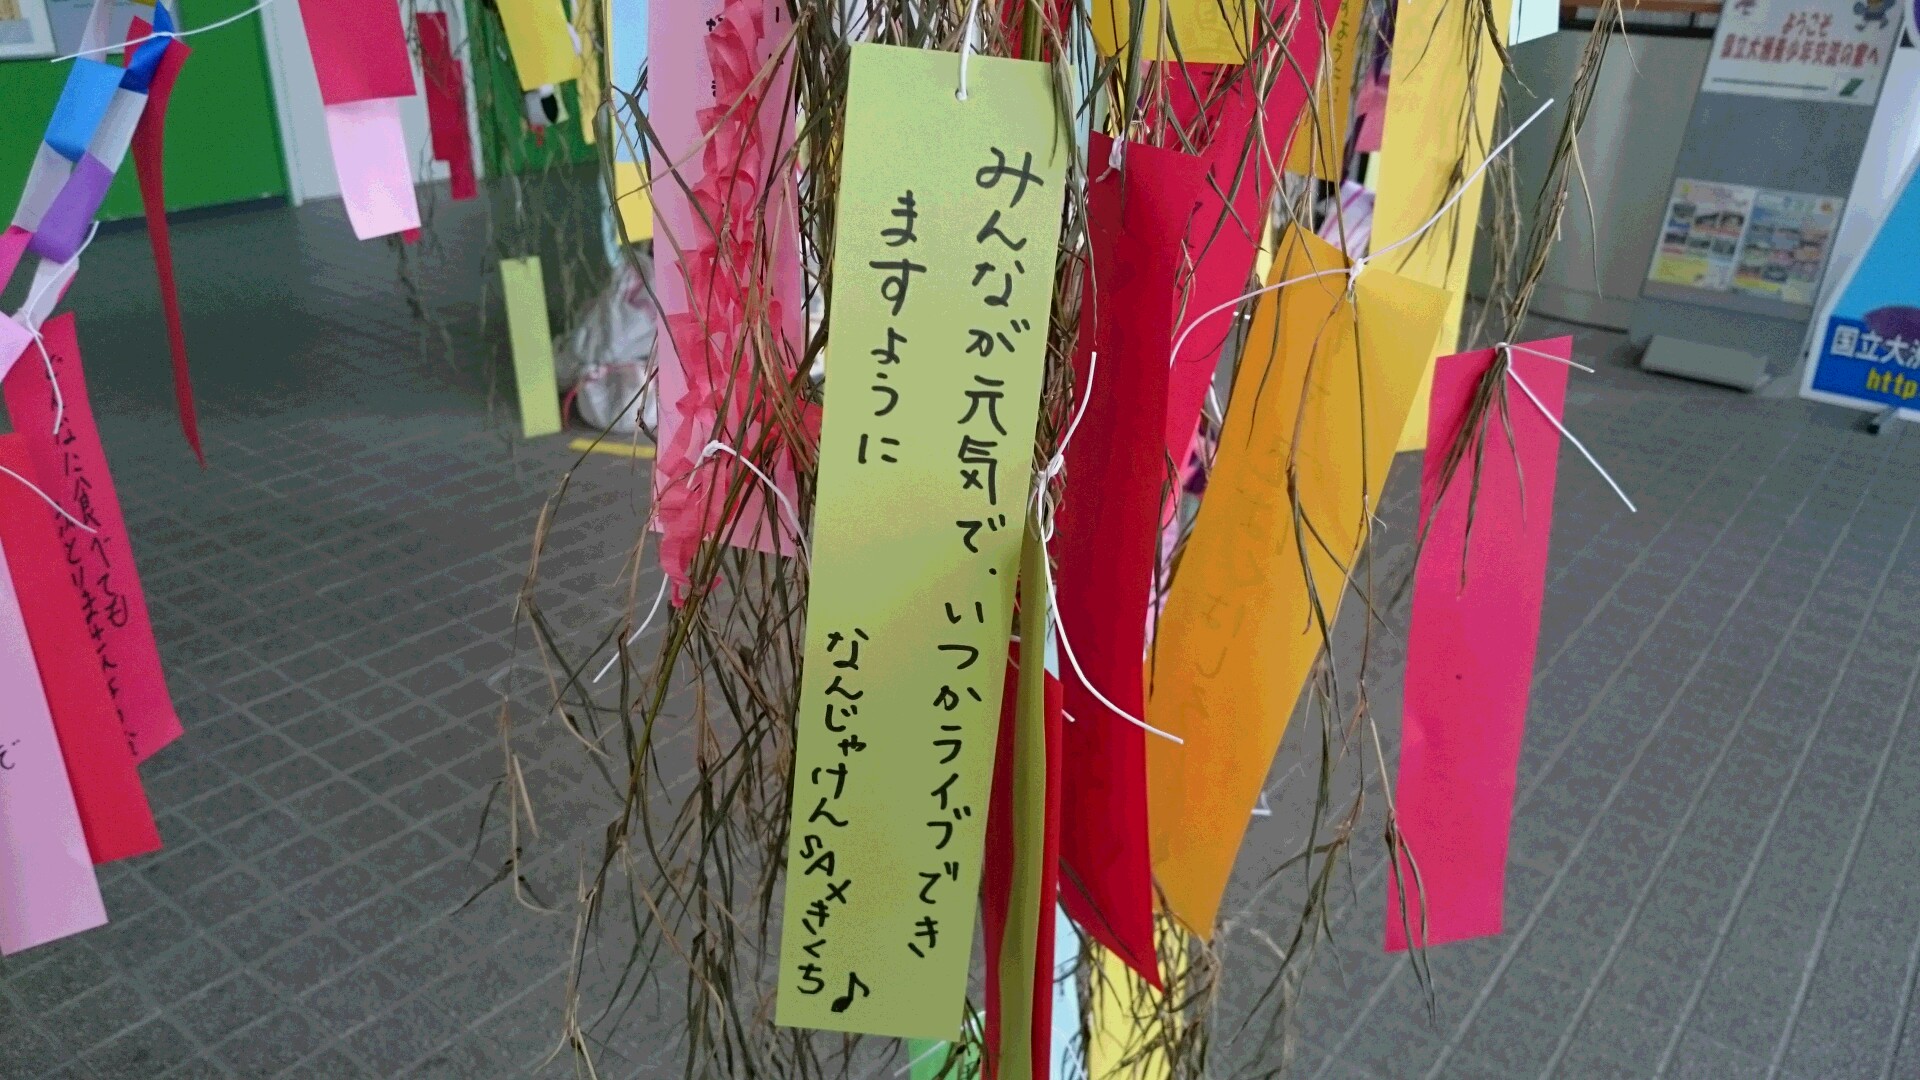 みんなが元気で、いつかライブでき
ますように
なんじゃけんSAXきくち♪
ようこそ
国立大洲青少年交流の家へ
国立大洲
http
に食べても
ふとりませんように